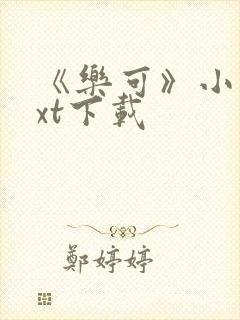 《樂可》小
xt下載
鄭婷婷